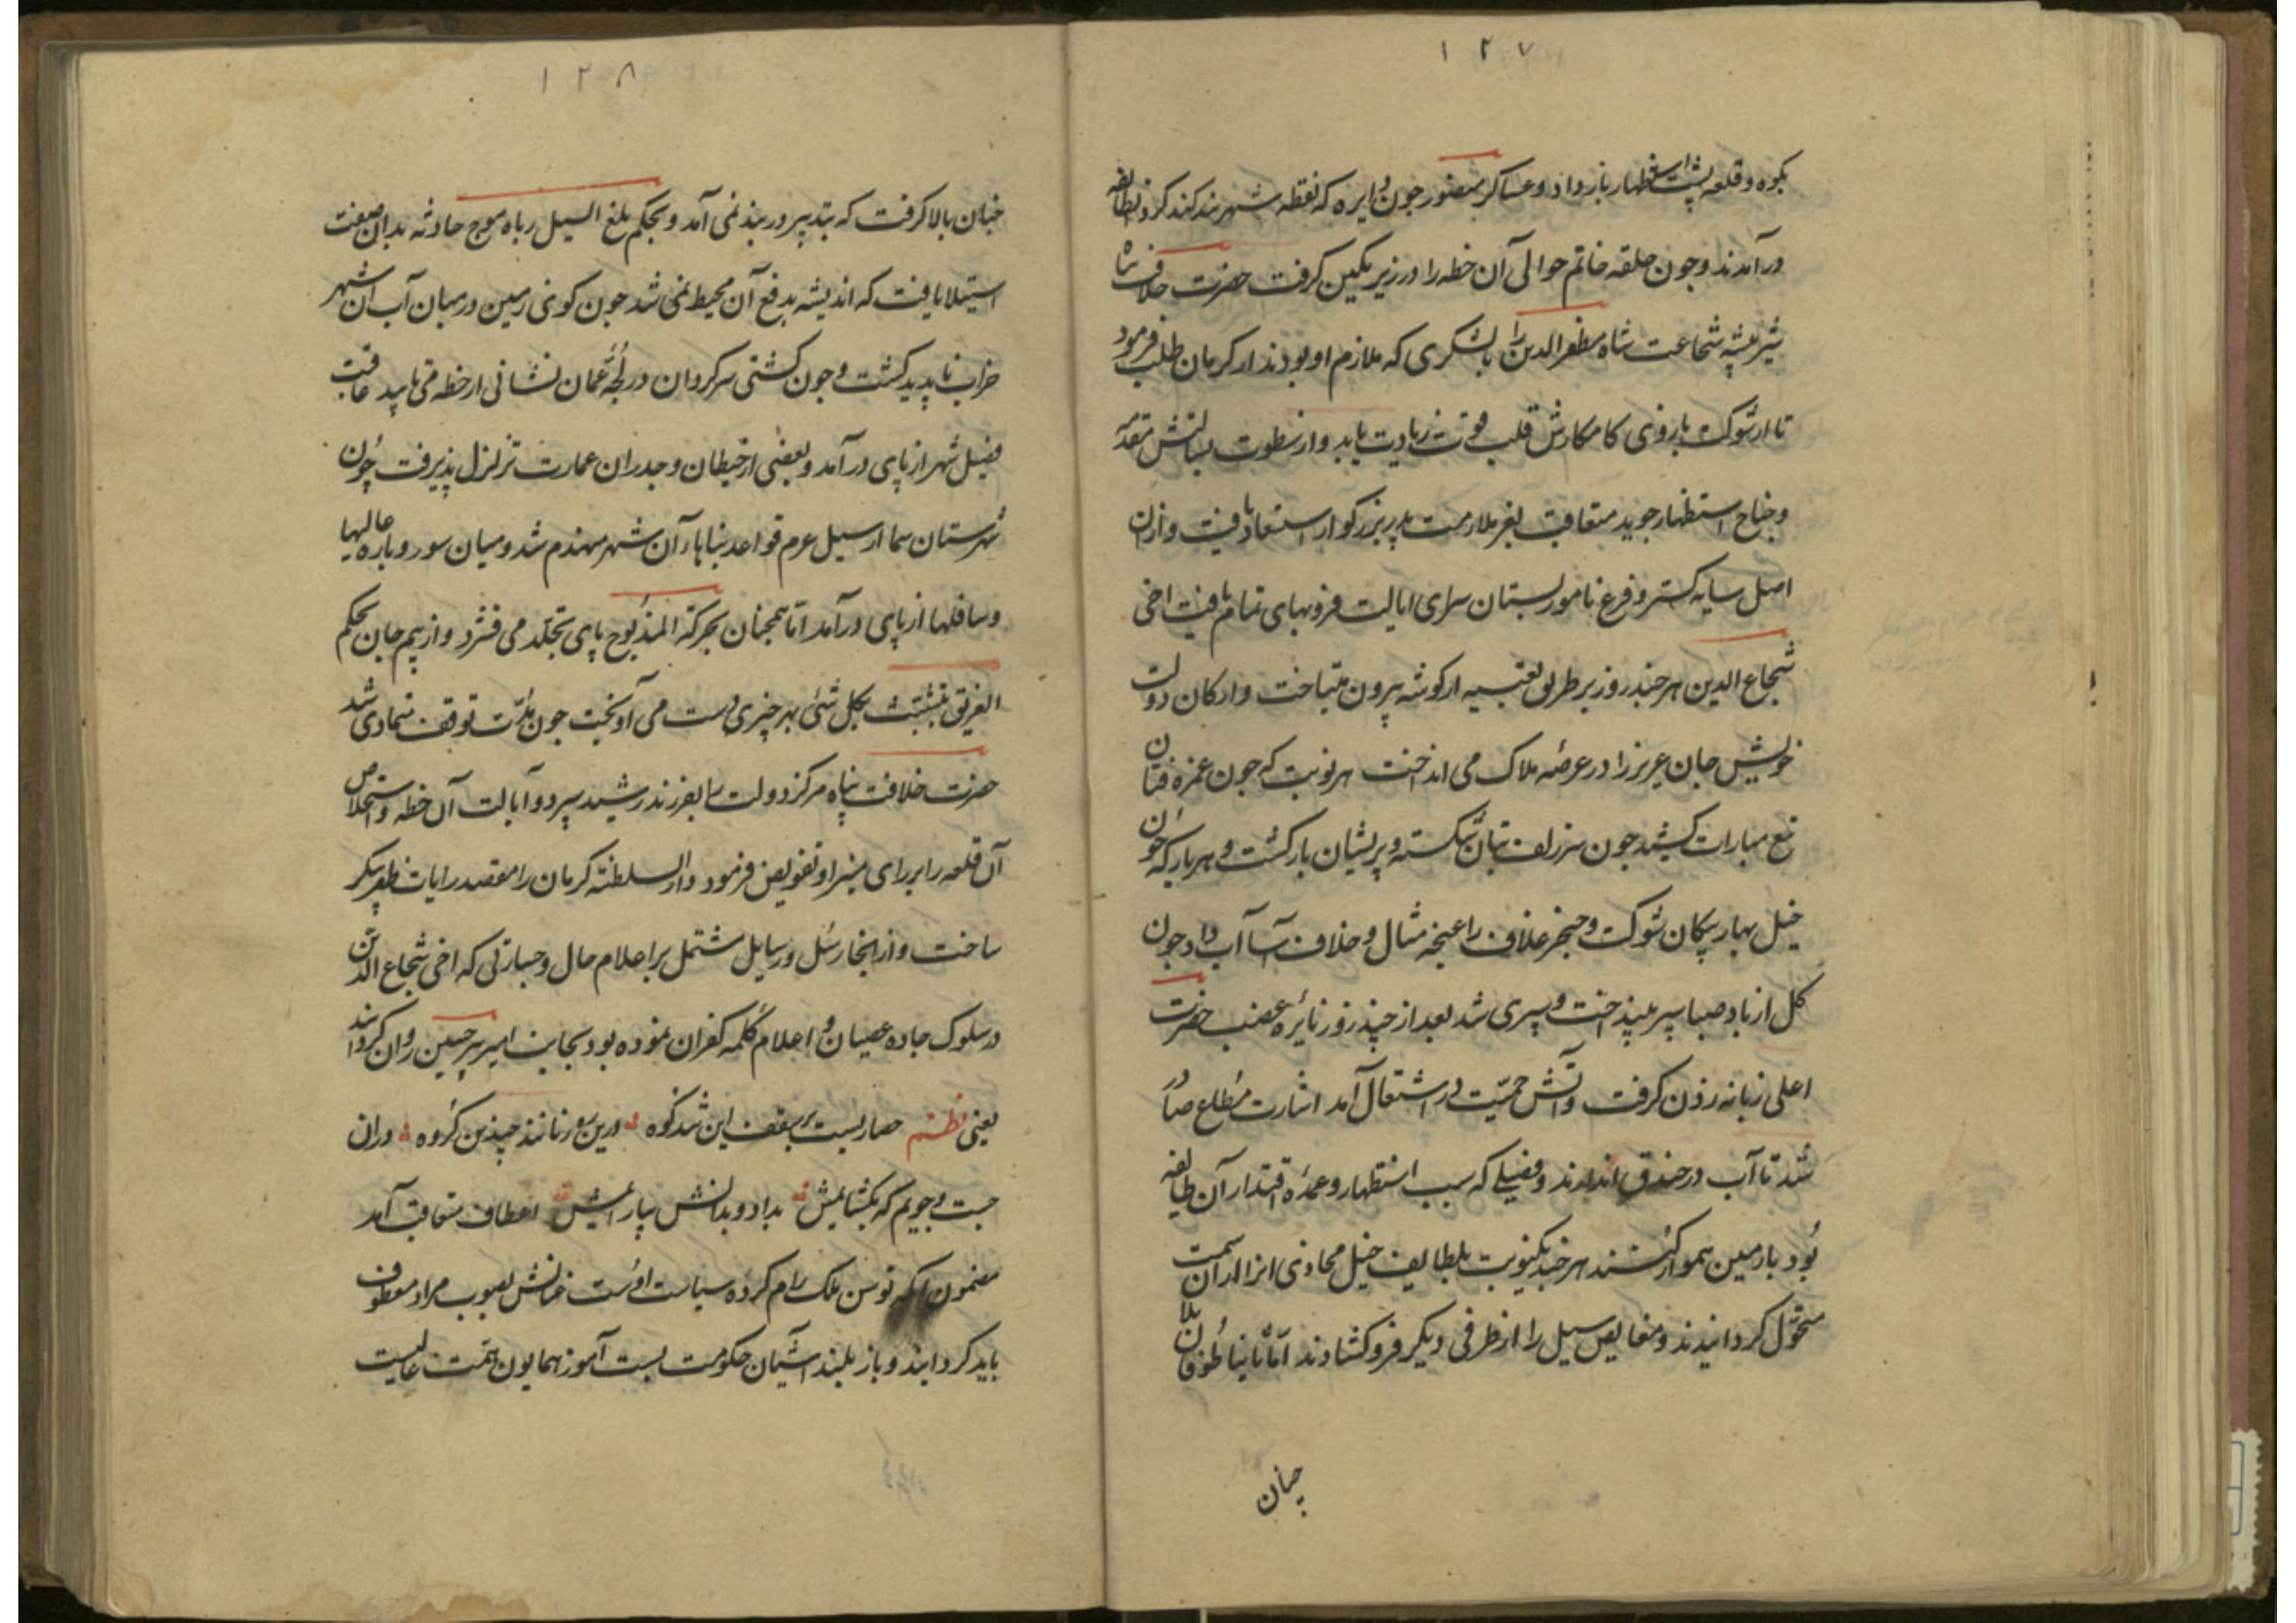 ۱۲۷
بکوه و قلعه پشت استظهار باز داد و عساکر منصور چون دایره که نقطه شهر بند کند کرد آن طایفه
درآمدند و چون حلقه خاتم حوالی آن خطه را در زیر نکین کرفت حضرت خلافت پناه
شیر بیشه شجاعت شاه مظفرالدین را بالشکری که ملازم او بودند از کرمان طلب فرمود
تا از شوکت بازوی کامکارش قلب قوت زیادت یابد و از سطوت بسالتش مقدمه
و جناح استظهار جوید متعاقب بعز ملازمت پدر بزرکوار استعاد یافت و ازان
اصل سایه کستر و فرع نامور بستان سرای ایالت فزو بهای تمام یافت اخی
شجاع الدین هر چند روز بر طریق تعبیه از کوشه بیرون میتاخت و ارکان دولت
خویش جان عزیز را در عرضه هلاک می انداخت هر نوبت که چون غمزه فتان
تیغ مبارات کشید چون سر زلف بتان شکسته و پریشان بازکشت و هر بار که چون
خیل بهار پیکان شوکت و خنجر غلاف را غنچه مثال و خلاف آسا آب داد چون
کل از باد صبا سپر بینداخت و سپری شد بعد از چند روز نایره غضب حضرت
اعلی زبانه زدن کرفت و آتش حمیت در اشتعال آمد اشارت مطاع صادر
شد تا آب در خندق اندازند و فصیلی که سبب استظهار و عمده اقتدار آن طایفه
بود با زمین هموار کنند هر چند یکنوبت بلطایف حیل محاذی انرا از ان سمت
متحول کردانیدند و مغایص سیل را از طرفی دیکر فرو کشادند اما ثانیا طوفان بلا
چنان
۱۲۸
چنان بالا کرفت که بتدبیر در بند نمی آمد و بحکم بلغ السیل رباه موج حادثه بدان صفت
استیلا یافت که اندیشه بدفع آن محیط نمی شد چون کوی زمین در میان آب آن شهر
خراب ناپدید کشت و چون کشتی سرکردان در لجه عمان نشانی از خطه می ‌‌‌‌‌‌عاقبت
فصیل شهر از پای درآمد و بعضی از حیطان و جدران عمارت تزلزل پذیرفت چون
شهرستان سبا از سیل عرم قواعد بناهاء آن شهر منهدم شد و میان سور و باره عالیها
و سافلها از پای درآمد اما همچنان بحرکة المذبوح پای تجلد می فشرد و از بیم جان بحکم
الغریق یتشبث بکل شیٔ بهر چیزی دست می آویخت چون مدت توقف متمادی شد
حضرت خلافت پناه مرکز دولت را بفرزند رشید سپرد و ایالت آن خطه و استخلاص
آن قلعه را برای منیر او تفویض فرمود و دار السلطنه کرمان را مقصد رایات ظفر پیکر
ساخت و از انجا رسل و رسایل مشتمل بر اعلام حال و جسارتی که اخی شجاع الدین
در سلوک جاده عصیان و اعلام کلمه کفران نموده بود بجانب امیر پیر حسین روان کردانید
یعنی نظم حصاریست بر سقف این شد کوه درین سور نانند چندین کروه دران
جست بجویم که بکشایمش بداد و بدانش بیارایمش اعطاف متعاقب آمد
مضمون آنکه توسن ملک رام کرده سیاست اوست عنانش بصوب مراد معطوف
باید کردانید و باز بلند آشیان حکومت دست آموز همایون همت عالیست